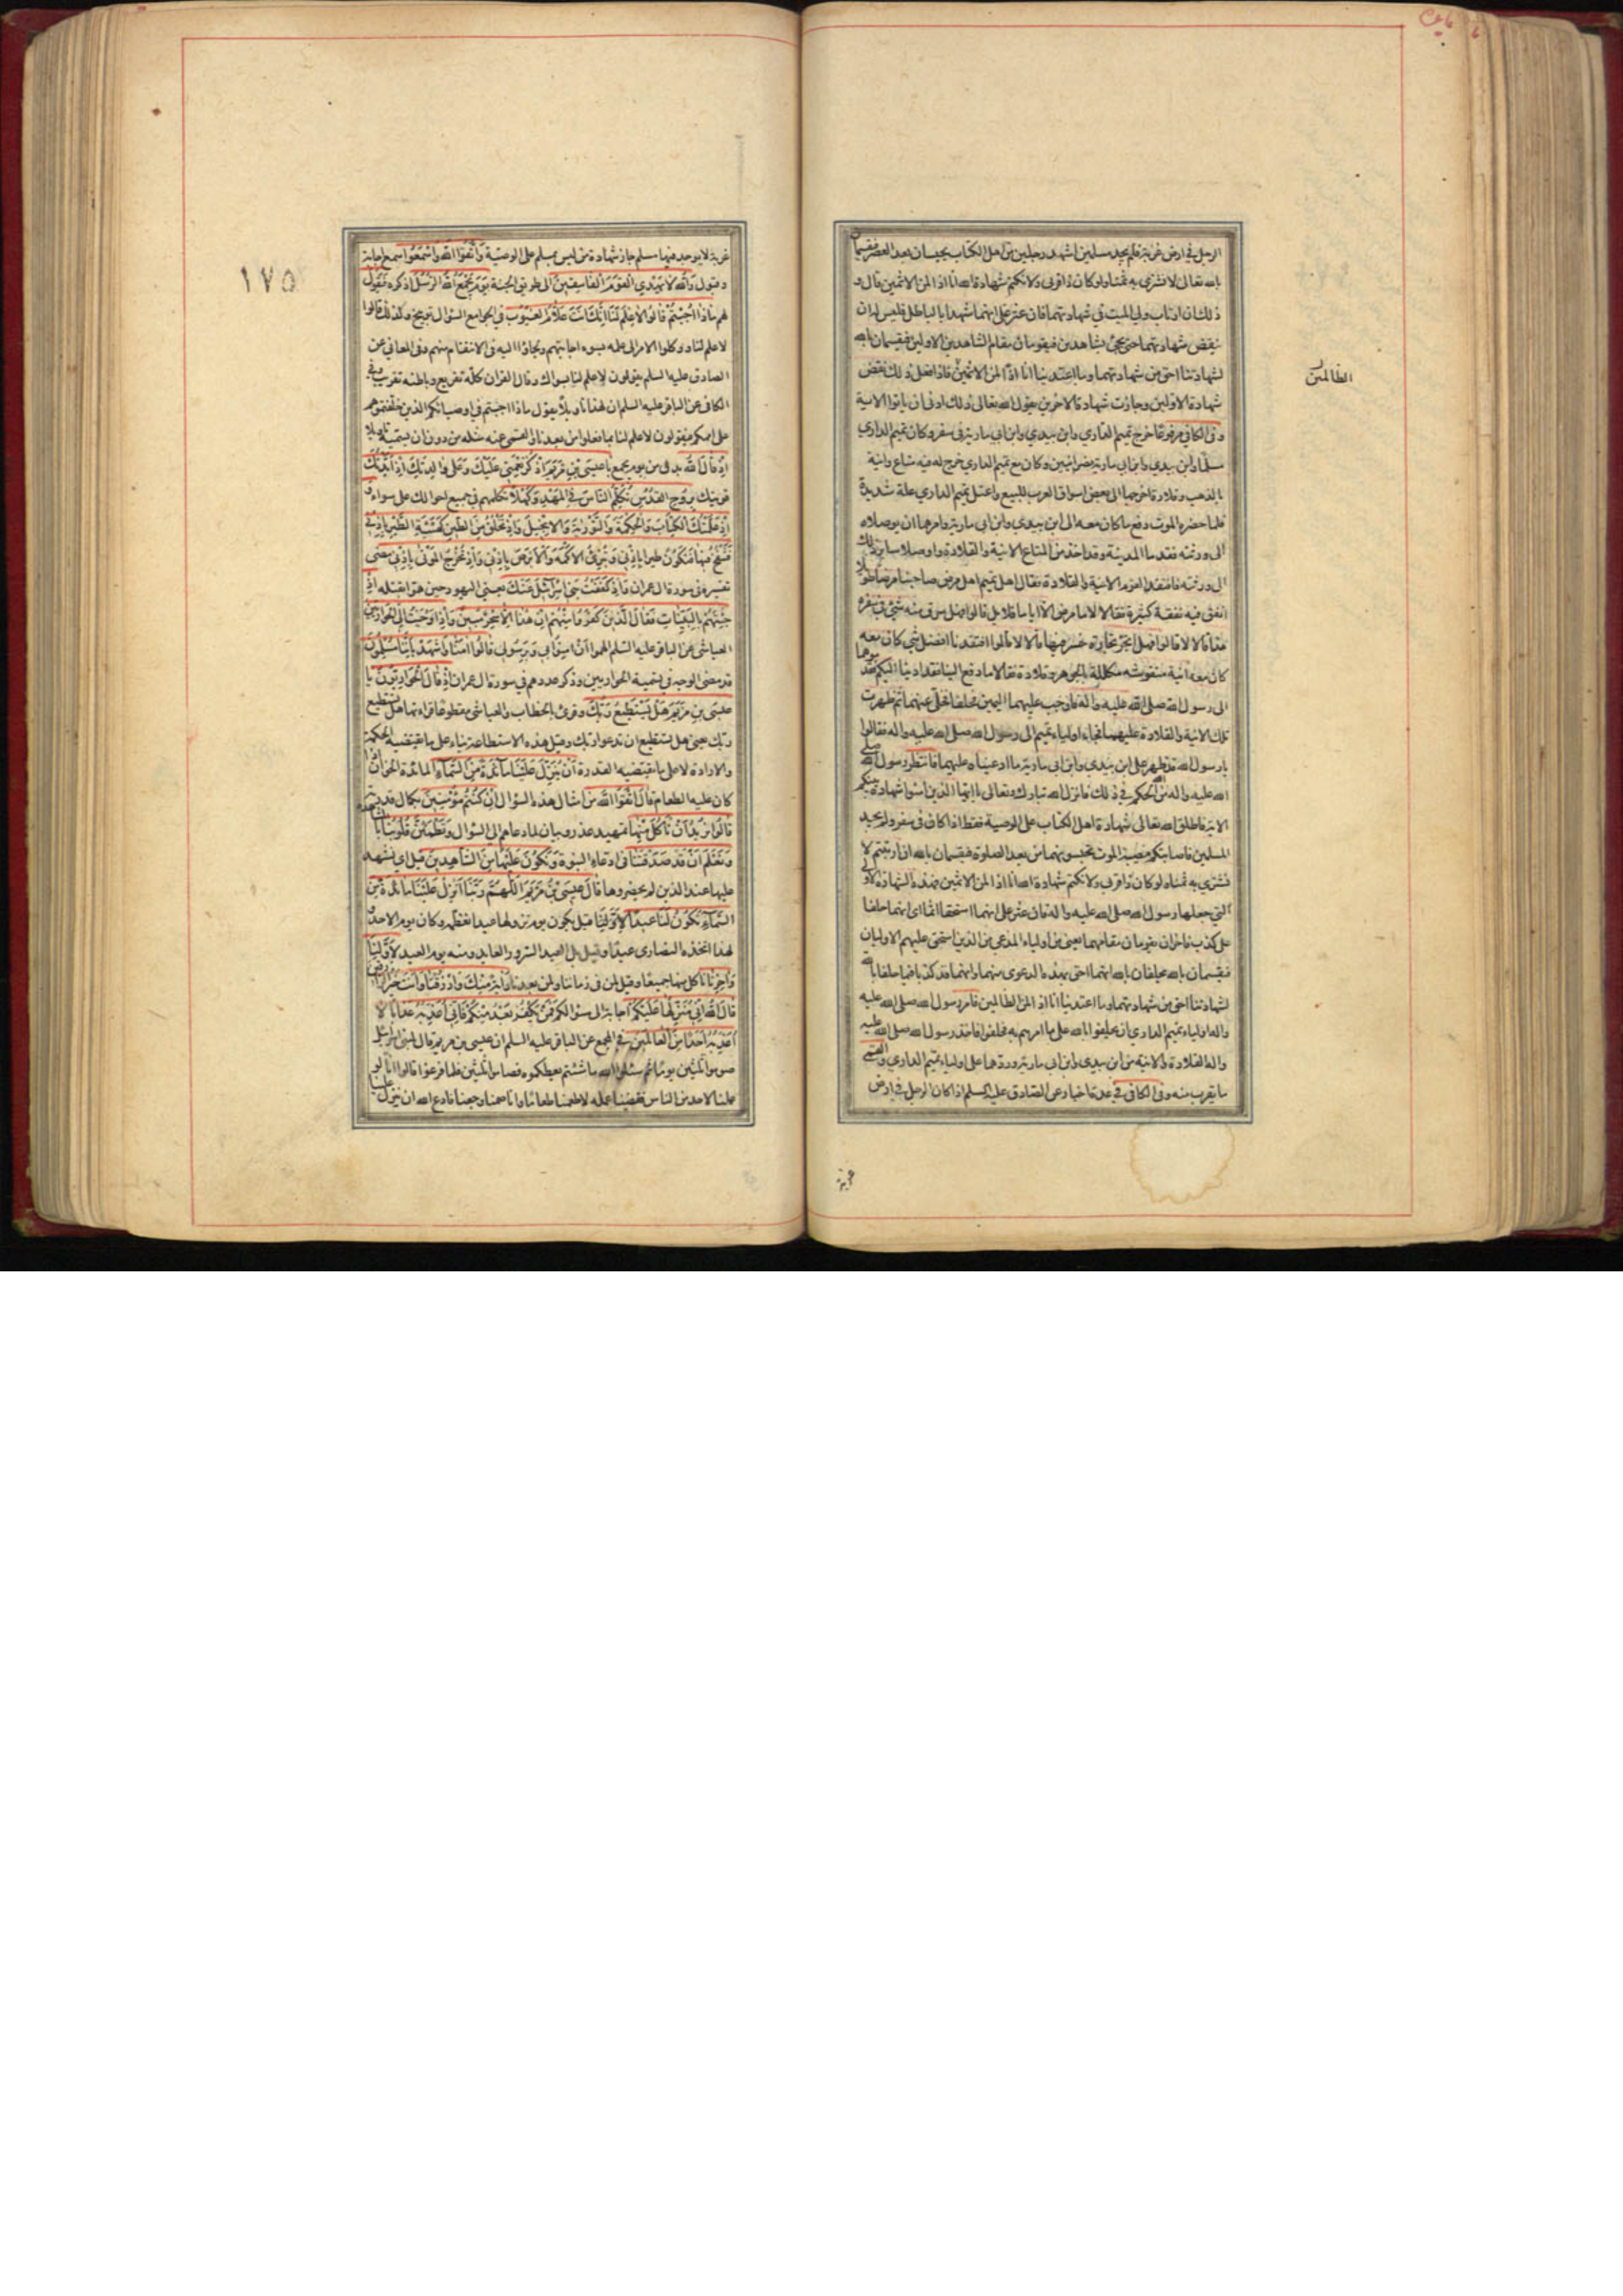 الرجل في ارض غربة فلم يجد مسلمين اشهد رجلين من اهل الكتاب يحبسان بعد العصر فيقسمان
بالله تعالى لا نشتري به ثمنا ولو كان ذا قربى ولا نكتم شهادة الله انا اذا لمن الاثمين قال و
ذلك ان ارتاب ولي الميت في شهادتهما فان عثر على انهما شهدا بالباطل فليس له ان
ينقض شهادتهما حتى يجئ بشاهدين فيقومان مقام الشاهدين الاولين فيقسمان بالله
لشهادتنا احق من شهادتهما وما اعتدينا انا اذا لمن الاثمين فاذا فعل ذلك نقض
شهادة الاولين وجازت شهادة الاخرين يقول الله تعالى ذلك ادنى ان ياتوا الاية
وفي الكافي مرفوعا خرج تميم الداري وابن بيدي وابن ابي مارية في سفر وكان تميم الداري
مسلما وابن بيدي وابن ابي مارية نصرانيين وكان مع تميم الداري خرج له فيه متاع وانية
بالذهب وقلادة اخرجها الى بعض اسواق العرب للبيع واعتل تميم الداري علة شديدة
فلما حضره الموت دفع ما كان معه الى ابن بيدي وابن ابي مارية وامرهما ان يوصلاه
الى ورثته فقدما المدينة وقد اخذ من المتاع الانية والقلادة واوصلا ساير ذلك
الى ورثته فافتقد القوم الانية والقلادة فقال اهل تميم لهما هل مرض صاحبنا مرضا طويلا
انفق فيه نفقة كثيرة فقالا لا ما مرض الا اياما قلايل قالوا فهل سرق منه شئ في سفره
هذا قالا لا قالوا فهل اتجر تجارة خسر فيها قالا لا قالوا افتقدنا افضل شئ كان معه
كان معه انية منقوشة مكللة بالجوهر وقلادة فقالا ما دفع الينا فقد اديناه اليكم فقدموهما
الى رسول الله صلى الله عليه واله فاوجب عليهما اليمين فحلفا فخلى عنهما ثم ظهرت
تلك الانية والقلادة عليهما فجاء اولياء تميم الى رسول الله صلى الله عليه واله فقالوا
يا رسول الله قد ظهر على ابن بيدي وابن ابي مارية ما ادعيناه عليهما فانتظر رسول الله صلى
الله عليه واله من الله الحكم في ذلك فانزل الله تبارك وتعالى يا ايها الذين امنوا شهادة بينكم
الاية فاطلق الله تعالى شهادة اهل الكتاب على الوصية فقط اذا كان في سفر ولم يجد
المسلمين فاصابتكم مصيبة الموت تحبسونهما من بعد الصلوة فيقسمان بالله ان ارتبتم لا
نشتري به ثمنا ولو كان ذا قربى ولا نكتم شهادة الله انا اذا لمن الاثمين فهذه الشهادة الاولى
التي جعلها رسول الله صلى الله عليه واله فان عثر على انهما استحقا اثما اى انهما حلفا
على كذب فاخران يقومان مقامهما يعني من اولياء المدعي من الذين استحق عليهم الاوليان
فيقسمان بالله يحلفان بالله انهما احق بهذه الدعوى منهما وانهما قد كذبا فيما حلفا بالله
لشهادتنا احق من شهادتهما وما اعتدينا انا اذا لمن الظالمين فامر رسول الله صلى الله عليه
واله اولياء تميم الداري ان يحلفوا بالله على ما امرهم به فحلفوا فاخذ رسول الله صلى الله عليه
واله القلادة والانية من ابن بيدي وابن ابي مارية وردهما على اولياء تميم الداري والقمى
ما يقرب منه وفي الكافي في عدة اخبار عن الصادق عليه السلم اذا كان الرجل في ارض
غربة
الظالمين
١٧٥
غربة لا يوجد فيها مسلم جاز شهادة من ليس بمسلم على الوصية وَاتَّقُوا اللهَ وَاسْمَعُوا سمع اجابة
وقبول وَاللهُ لا يَهْدِي الْقَوْمَ الْفَاسِقِينَ الى طريق الجنة يَوْمَ يَجْمَعُ اللهُ الرُّسُلَ اذكره فَيَقُولُ
لهم مَاذَا اُجِبْتُمْ قَالُوا لا عِلْمَ لَنَا اِنَّكَ اَنْتَ عَلاّمُ الْغُيُوبِ في الجوامع السؤال توبيخ وكذلك قالوا
لا علم لنا ووكلوا الامر الى علمه بسوء اجابتهم ولجاؤا اليه في الانتقام منهم وفي المعاني عن
الصادق عليه السلم يقولون لا علم لنا بسواك وقال القران كله تقريع وباطنه تقريب وفي
الكافي عن الباقر عليه السلم ان لهذا تاويلا يقول ماذا اجبتم في اوصيائكم الذين خلفتموهم
على اممكم فيقولون لا علم لنا بما فعلوا من بعدنا والقمى عنه مثله من دون ان يسميه تاويلا
اِذْ قَالَ اللهُ بدل من يوم يجمع يَا عِيسَى بْنَ مَرْيَمَ اذْكُرْ نِعْمَتِي عَلَيْكَ وَعَلَى وَالِدَتِكَ اِذْ اَيَّدْتُكَ
قويتك بِرُوحِ الْقُدُسِ تُكَلِّمُ النَّاسَ فِي الْمَهْدِ وَكَهْلاً تكلمهم في جميع احوالك على سواء وَ
اِذْ عَلَّمْتُكَ الْكِتَابَ وَالْحِكْمَةَ وَالتَّوْرٰيةَ وَالاِنْجِيلَ وَاِذْ تَخْلُقُ مِنَ الطِّينِ كَهَيْئَةِ الطَّيْرِ بِاِذْنِي
فَتَنْفُخُ فِيهَا فَتَكُونُ طَيْراً بِاِذْنِي وَتُبْرِئُ الاَكْمَهَ وَالاَبْرَصَ بِاِذْنِي وَاِذْ تُخْرِجُ الْمَوْتَى بِاِذْنِي مضى
تفسيره في سورة ال عمران وَاِذْ كَفَفْتُ بَنِي اِسْرَائِيلَ عَنْكَ يعني اليهود حين هموا بقتله اِذْ
جِئْتَهُمْ بِالْبَيِّنَاتِ فَقَالَ الَّذِينَ كَفَرُوا مِنْهُمْ اِنْ هٰذَا اِلاّ سِحْرٌ مُبِينٌ وَاِذْ اَوْحَيْتُ اِلَى الْحَوَارِيِّينَ
العياشي عن الباقر عليه السلم الهموا اَنْ اٰمِنُوا بِي وَبِرَسُولِي قَالُوا اٰمَنَّا وَاشْهَدْ بِاَنَّنَا مُسْلِمُونَ
قد مضى الوجه في تسمية الحواريين وذكر عددهم في سورة ال عمران اِذْ قَالَ الْحَوَارِيُّونَ يَا
عِيسَى بْنَ مَرْيَمَ هَلْ يَسْتَطِيعُ رَبُّكَ وقرئ بالخطاب والعياشي مقطوعا قراءتها هل تستطيع
ربك يعني هل تستطيع ان تدعو ربك وقيل هذه الاستطاعة بناء على ما تقتضيه الحكمة
والارادة لا على ما يقتضيه القدرة اَنْ يُنَزِّلَ عَلَيْنَا مَائِدَةً مِنَ السَّمَاءِ المائدة الخوان اذا
كان عليه الطعام قَالَ اتَّقُوا اللهَ من امثال هذه السؤال اِنْ كُنْتُمْ مُؤْمِنِينَ بكمال قدرته
قَالُوا نُرِيدُ اَنْ نَاْكُلَ مِنْهَا تمهيد عذر وبيان لما دعاهم الى السؤال وَتَطْمَئِنَّ قُلُوبُنَا
وَنَعْلَمَ اَنْ قَدْ صَدَقْتَنَا في ادعاء النبوة وَنَكُونَ عَلَيْهَا مِنَ الشَّاهِدِينَ قيل اي نشهد
عليها عند الذين لم يحضروها قَالَ عِيسَى بْنُ مَرْيَمَ اللّٰهُمَّ رَبَّنَا اَنْزِلْ عَلَيْنَا مَائِدَةً مِنَ
السَّمَاءِ تَكُونُ لَنَا عِيداً لاَوَّلِنَا قيل يكون يوم نزولها عيدا نعظمه وكان يوم الاحد و
لهذا اتخذه النصارى عيدا وقيل بل العيد السرور العايد ومنه يوم العيد لاَوَّلِنَا
وَاٰخِرِنَا ناكل منها جميعا وقيل لمن في زماننا ولمن بعدنا وَاٰيَةً مِنْكَ وَارْزُقْنَا وَاَنْتَ خَيْرُ الرَّازِقِينَ
قَالَ اللهُ اِنِّي مُنَزِّلُهَا عَلَيْكُمْ اجابة الى سؤالكم فَمَنْ يَكْفُرْ بَعْدُ مِنْكُمْ فَاِنِّي اُعَذِّبُهُ عَذَاباً لا
اُعَذِّبُهُ اَحَداً مِنَ الْعَالَمِينَ في المجمع عن الباقر عليه السلم ان عيسى بن مريم قال لبني اسرائيل
صوموا ثلثين يوما ثم سئلوا الله ما شئتم يعطكموه فصاموا ثلثين فلما فرغوا قالوا انا لو
عملنا لاحد من الناس فقضينا عمله لاطعمنا طعاما وانا صمنا وجعنا فادع الله ان ينزل علينا